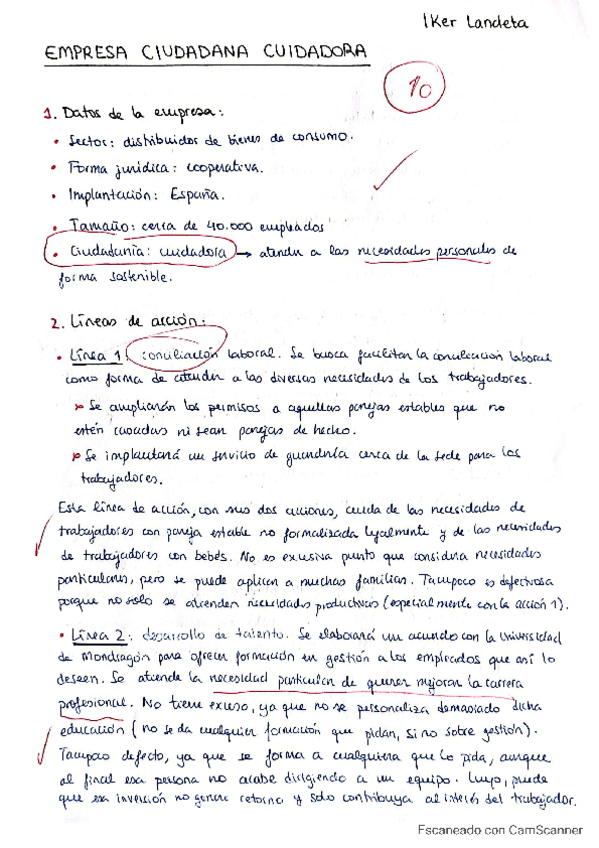 Iker Landeta
EMPRESA CIUDADANA CUIDADORA
10
1. Datos de la empresa:
• Sector: distribuidor de bienes de consumo.
• Forma jurídica: cooperativa.
• Implantación: España.
• Tamaño: cerca de 40.000 empleados
• Ciudadanía: cuidadora → atender a las necesidades personales de
forma sostenible.
2. Líneas de acción:
• Línea 1: conciliación laboral. Se busca facilitar la conciliación laboral
como forma de atender a las diversas necesidades de los trabajadores.
Se ampliarán los permisos a aquellas parejas estables que no
estén casadas ni sean parejas de hecho.
Se implantará un servicio de guardería cerca de la sede para los
trabajadores.
Esta línea de acción, con sus dos acciones, cuida de las necesidades de
trabajadores con pareja estable no formalizada legalmente y de las necesidades
de trabajadores con bebés. No es exusiva puesto que considera necesidades
particulares, pero se puede aplicar a muchas familias. Tampoco es defectivosa
porque no solo se atienden necesidades productivas (especialmente con la acción 1).
• Línea 2: desarrollo de talento. Se elaborará un acuerdo con la Universidad
de Mondragón para ofrecer formación en gestión a los empleados que así lo
deseen. Se atiende la necesidad particular de querer mejorar la carrera
profesional. No tiene exceso, ya que no se personaliza demasiado dicha
educación (no se da cualquier formación que pidan, si no sobre gestión).
Tampoco defecto, ya que se forma a cualquiera que lo pida, aunque
al final esa persona no acabe dirigiendo a un equipo. Luego, puede
que esa inversión no genere retorno y solo contribuya al interés del trabajador.
Escaneado con CamScanner